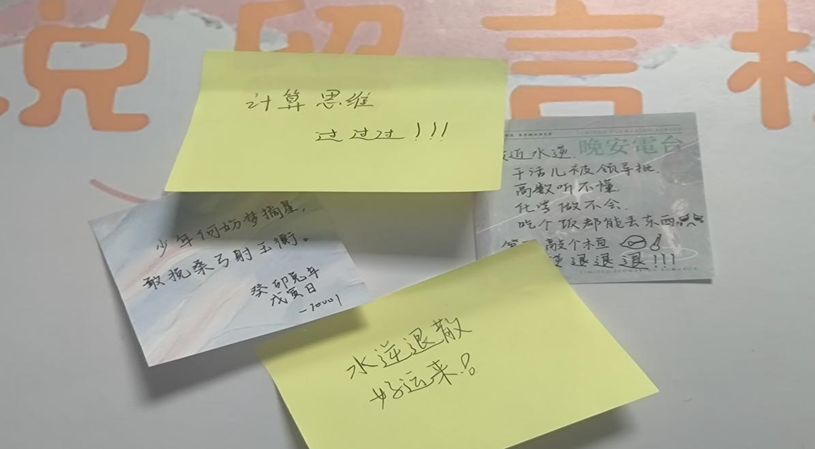 说留言板
计算思维
过过过!!!
近水逆
晚安電台
干活儿被领导批.
高数听不懂.
化学做不会.
吃个饭都能丢东西
敲个木鱼
退退退!!!
少年何妨梦摘星,
敢挽桑弓射玉衡。
癸卯兔年
戊寅日
水逆退散
好运来!